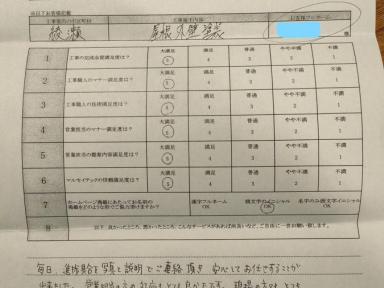 ※以下お客様記載
工事箇所の市区町村 工事施工内容 お客様フルネーム
綾瀬 屋根外壁塗装 様
1 工事の完成全般満足度は? 大満足 5 満足 4 普通 3 やや不満 2 不満 1
2 工事職人のマナー満足度は? 大満足 5 満足 4 普通 3 やや不満 2 不満 1
3 工事職人の技術満足度は? 大満足 5 満足 4 普通 3 やや不満 2 不満 1
4 営業担当のマナー満足度は? 大満足 5 満足 4 普通 3 やや不満 2 不満 1
5 営業担当の提案内容満足度は? 大満足 5 満足 4 普通 3 やや不満 2 不満 1
6 マルセイテックの信頼満足度は? 大満足 5 満足 4 普通 3 やや不満 2 不満 1
7 ホームページ掲載にあたってお名前の
掲載をどのような形でご協力頂けますか? 漢字フルネーム OK 英文字のイニシャル OK 名字のみ英文字イニシャル OK
8 以下、良かったところ、悪かったところ、こんなサービスがあれば尚良いなど、ご自由に一言お願い致します。
毎日、進捗具合を写真と説明でご連絡頂き 安心してお任せすることが
出来ました。営業担当の方の対応もとても良かったです。現場の方も とても